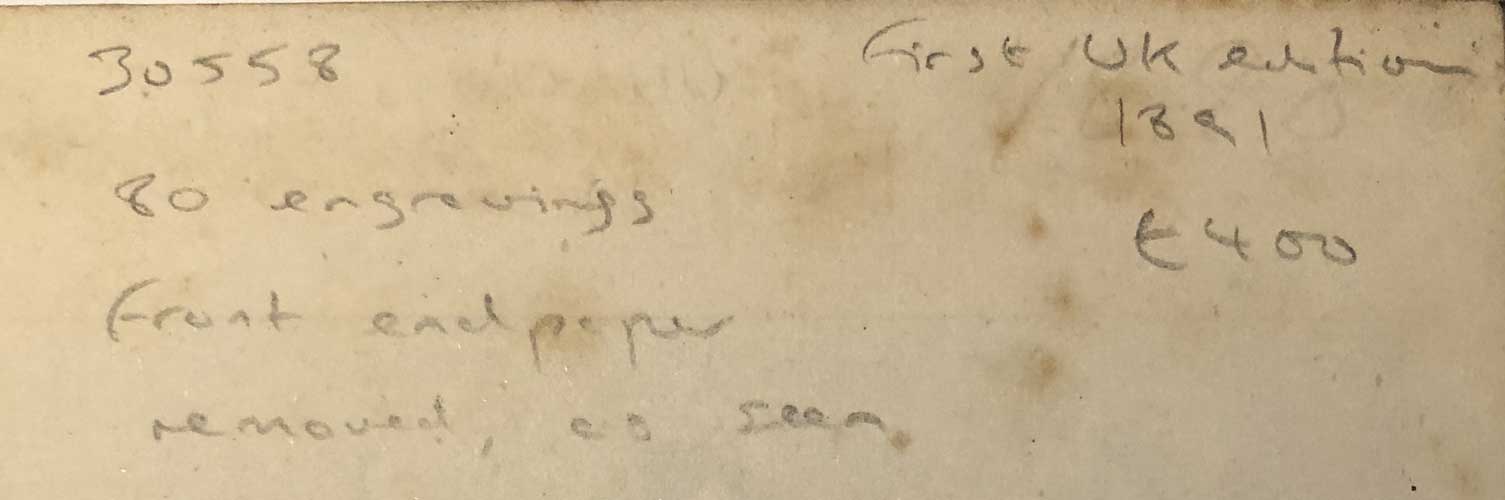 30558
First UK edition
1891
80 engravings
£400
Front endpaper
removed, as seen